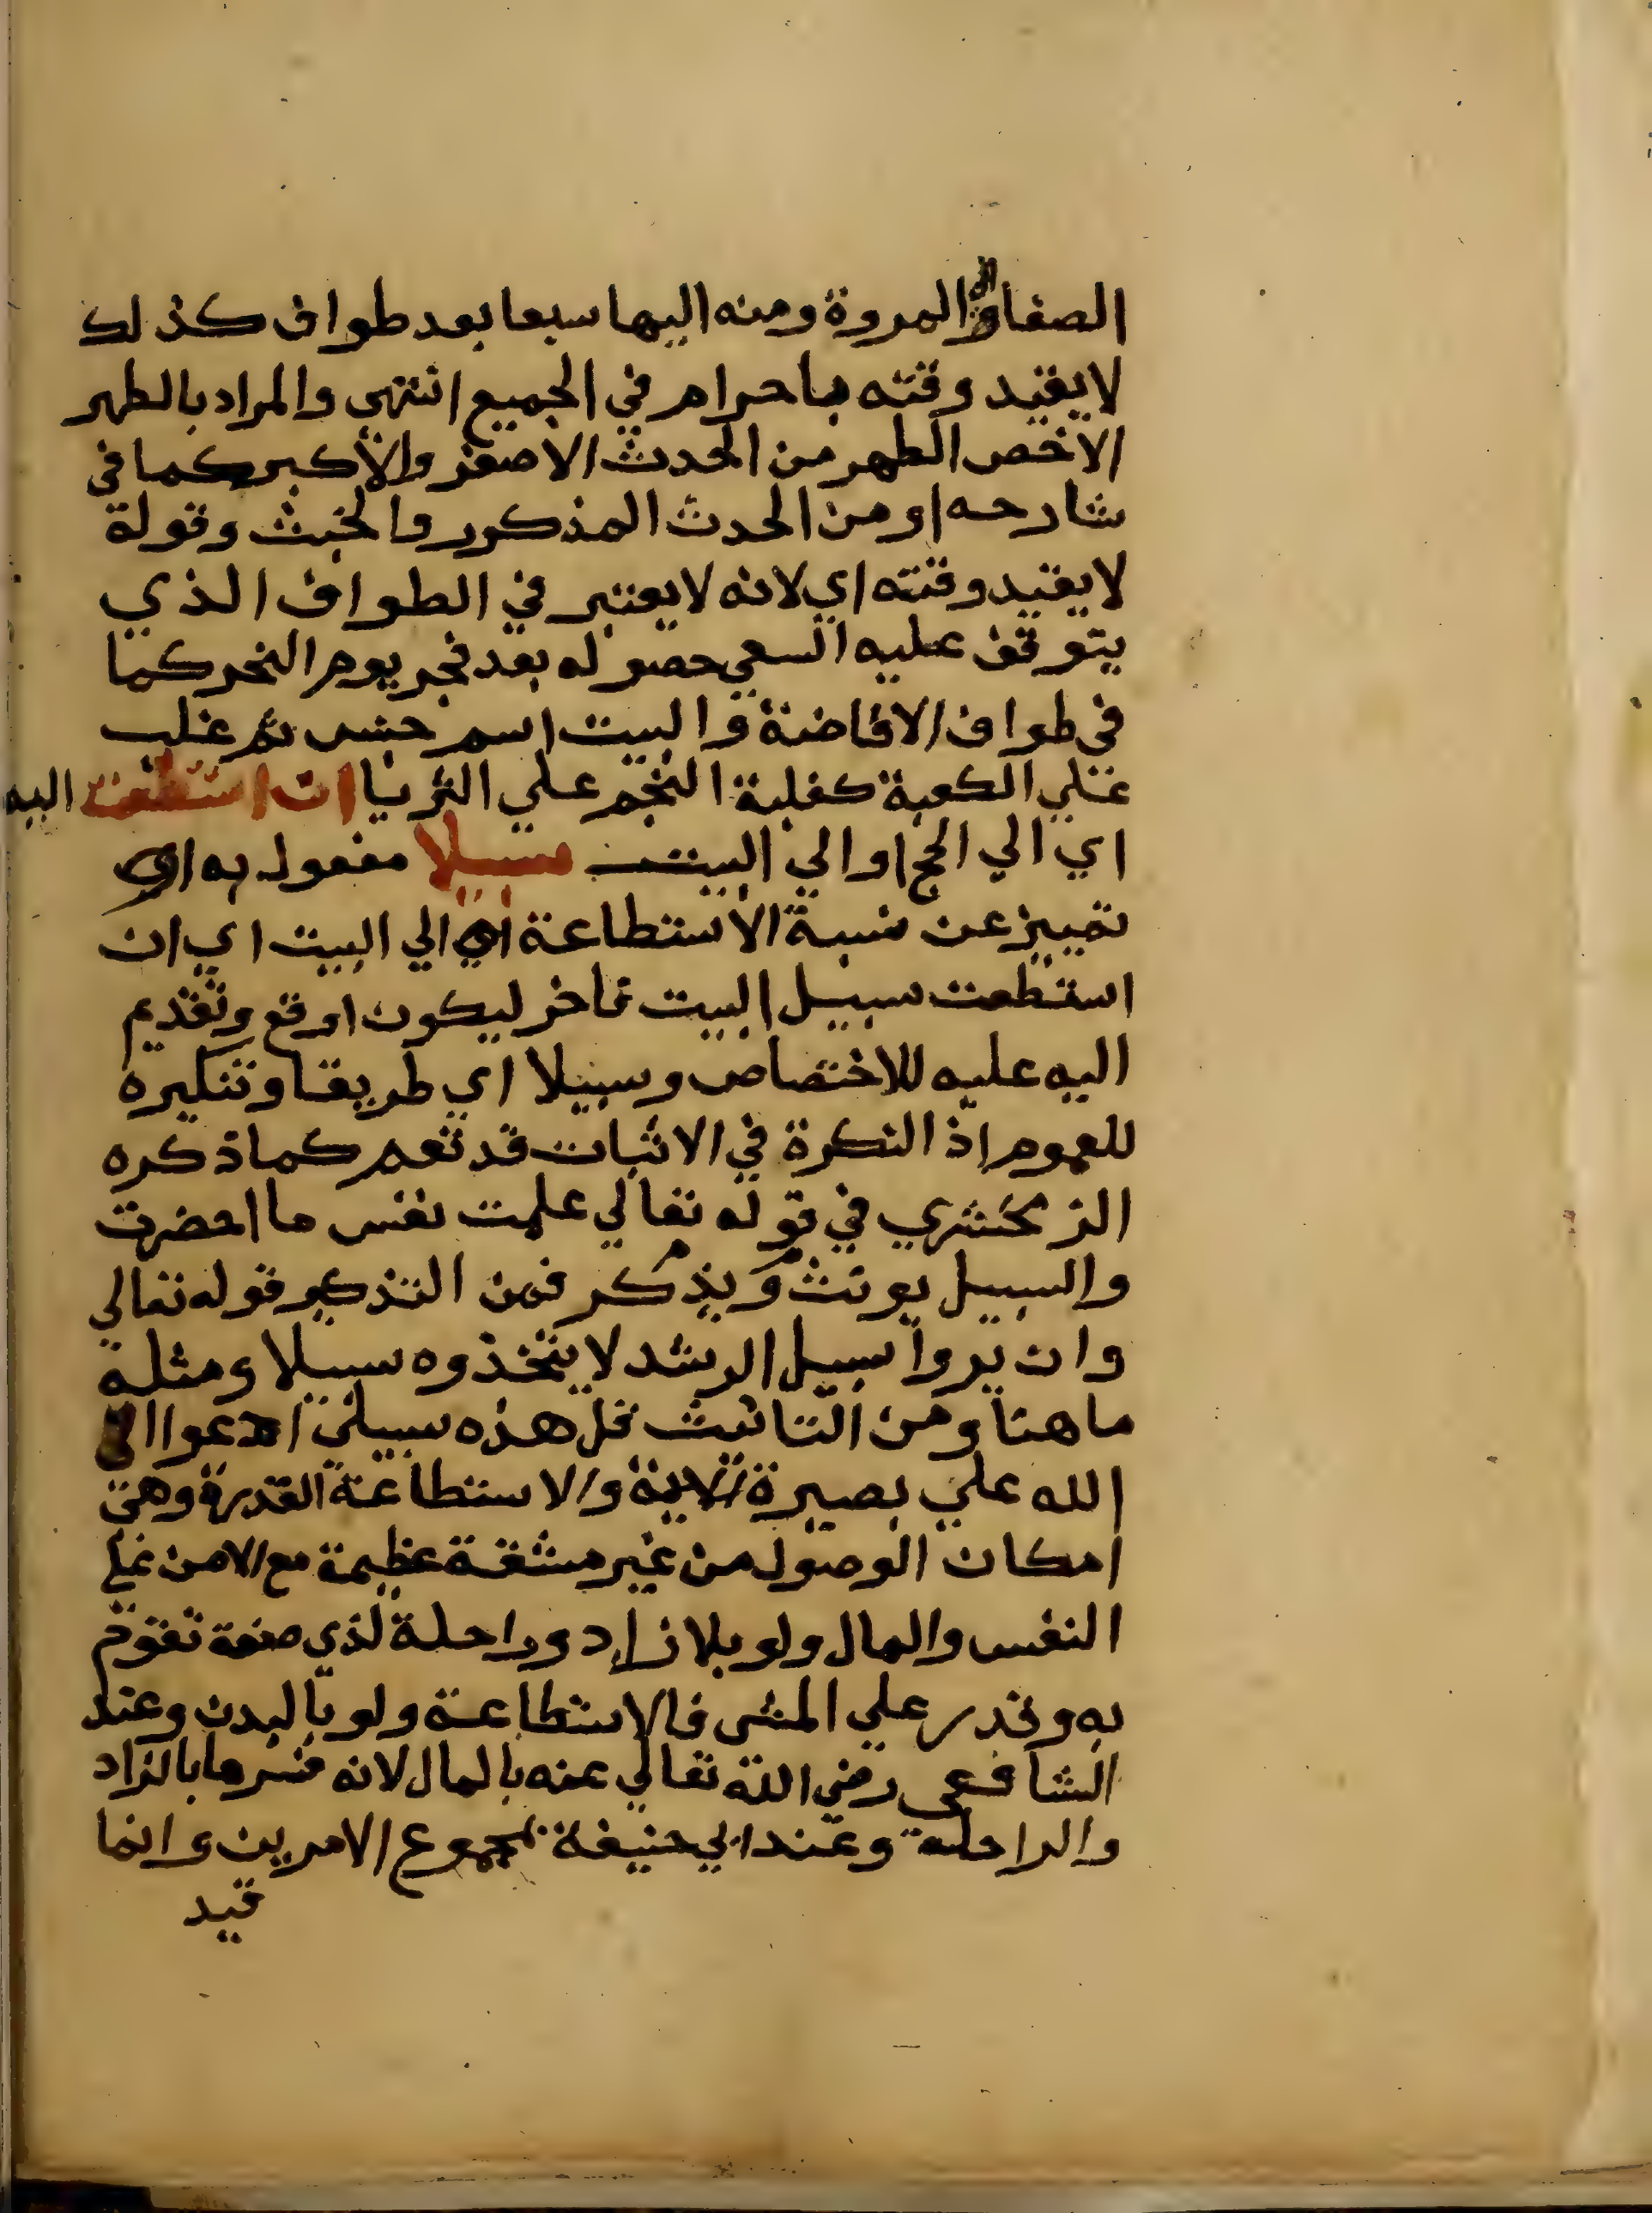 الصفا الى المروة ومنه اليها سبعا بعد طواف كذلك
لا يقيد وقته باحرام في الجميع انتهي والمراد بالطهر
الاخص الطهر من الحدث الاصغر والاكبر كما في
شارحه او من الحدث المذكور والخبث وقوله
لا يقيد وقته اي لانه لا يعتبر في الطواف الذي
يتوقف عليه السعي حصوله بعد فجر يوم النحر كما
في طواف الافاضة والبيت اسم جنس ثم غلب
علي الكعبة كغلبة النجم علي الثريا ان استطعت اليه
اي الي الحج او الي البيت سبيلا مفعول به او
تمييز عن نسبة الاستطاعة الي البيت اي ان
استطعت سبيل البيت فاخر ليكون اوقع وتقديم
اليه عليه للاختصاص وسبيلا اي طريقا وتنكيره
للعموم اذ النكرة في الاثبات قد تعم كما ذكره
الزمخشري في قوله تعالي علمت نفس ما احضرت
والسبيل يونث ويذكر فمن التذكير قوله تعالي
وان يروا سبيل الرشد لا يتخذوه سبيلا ومثله
ما هنا ومن التانيث قل هذه سبيلي ادعوا الى
الله علي بصيرة الاية والاستطاعة القدرة وهي
امكان الوصول من غير مشقة عظيمة مع الامن علي
النفس والمال ولو بلا زاد وراحلة لذي صنعة تقوم
به وقدر علي المشى فالاستطاعة ولو بالبدن وعند
الشافعي رضي الله تعالي عنه بالمال لانه فسرها بالزاد
والراحلة وعند ابي حنيفة بمجموع الامرين وانما
قيد